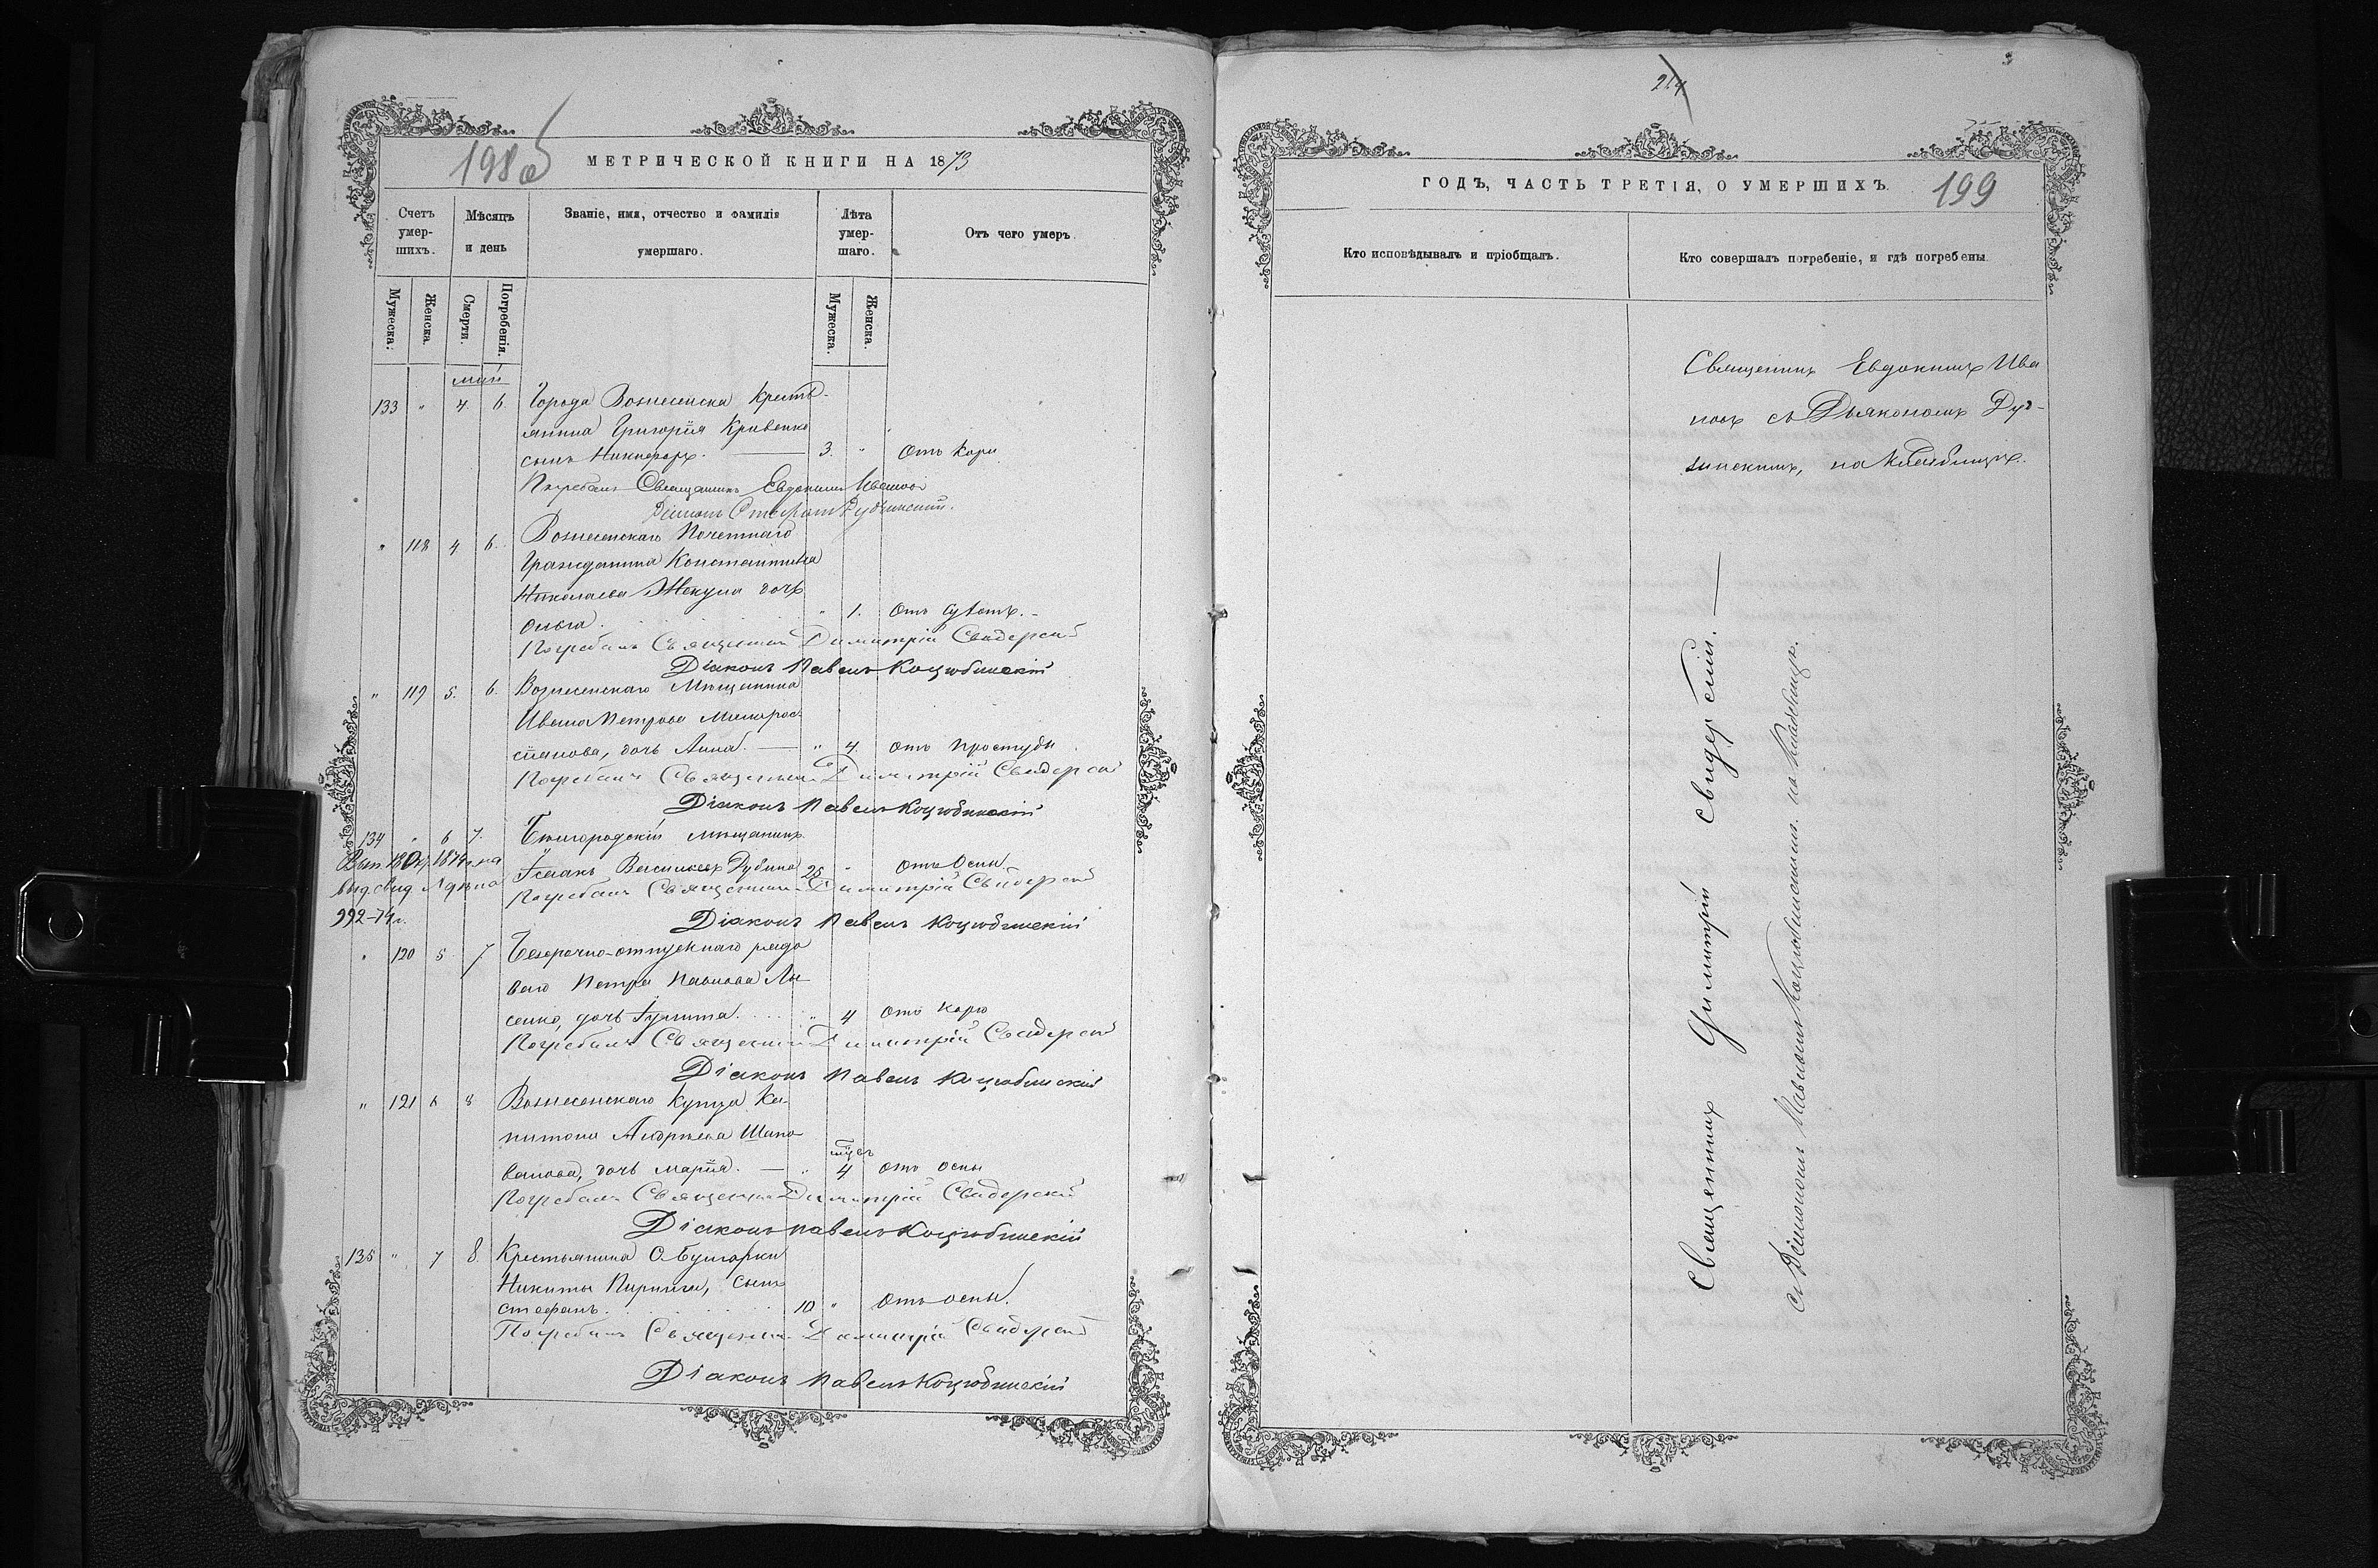 198 об
МЕТРИЧЕСКОЙ КНИГИ НА 1873
Счетъ умер- шихъ.
Мѣсяцъ и день
Званіе, имя, отчество и фамилія умершаго.
Лѣта умер- шаго.
Отъ чего умеръ.
Мужеска.
Женска.
Смерти.
Погребенія.
Мужеска.
Женска.
май
133 " 4. 6. Города Вознесенска Кресть-
янина Григорія Кривенко
сынъ Никифоръ. 3. " Отъ Кори
Погребалъ Священникъ Евдокимъ Ивановъ
Діаконъ Дубинскій.
" 118 4 6. Вознесенскаго Почетнаго
Гражданина Константина
Николаева дочь
Ольга. " 1. Отъ
Погребалъ Священникъ Димитрій Свидерскій
Діаконъ Павелъ Коцюбинскій
" 119 5. 6. Вознесенскаго Мѣщанина
Ивана Петрова
дочь Анна. " 4. отъ простуды
Погребалъ Священникъ Димитрій Свидерскій
Діаконъ Павелъ Коцюбинскій
134 " 6 7. мѣщанинъ
Васильевъ Дубина 25 " отъ Оспы
Погребалъ Священникъ Димитрій Свидерскій
992-74 г.
Діаконъ Павелъ Коцюбинскій
" 120 5. 7 Безсрочно-отпускнаго рядо
ваго Петра Павлова Ли-
сенко, дочь Іулита. " 4 отъ кори
Погребалъ Священникъ Димитрій Свидерскій
Діаконъ Павелъ Коцюбинскій
" 121 6 8 Вознесенскаго Купца Ка-
питона Андреева Шапо
валова, дочь Марія. " 4 мѣсц отъ оспы
Погребалъ Священникъ Димитрій Свидерскій
Діаконъ Павелъ Коцюбинскій
135 " 7 8. Крестьянина С. Булгарки
Никиты сынъ
Стефанъ. 10 " Отъ оспы.
Погребалъ Священникъ Димитрій Свидерскій
Діаконъ Павелъ Коцюбинскій
214
ГОДЪ, ЧАСТЬ ТРЕТІЯ, О УМЕРШИХЪ.
199
Кто исповѣдывалъ и пріобщалъ.
Кто совершалъ погребеніе, и гдѣ погребены.
Священникъ Евдокимъ Ива
новъ съ Дьякономъ Ду-
бинскимъ, на Кладбищѣ.
Священникъ Димитрій Свидерскій.
съ Діакономъ Павломъ Коцюбинскимъ. на Кладбищѣ.